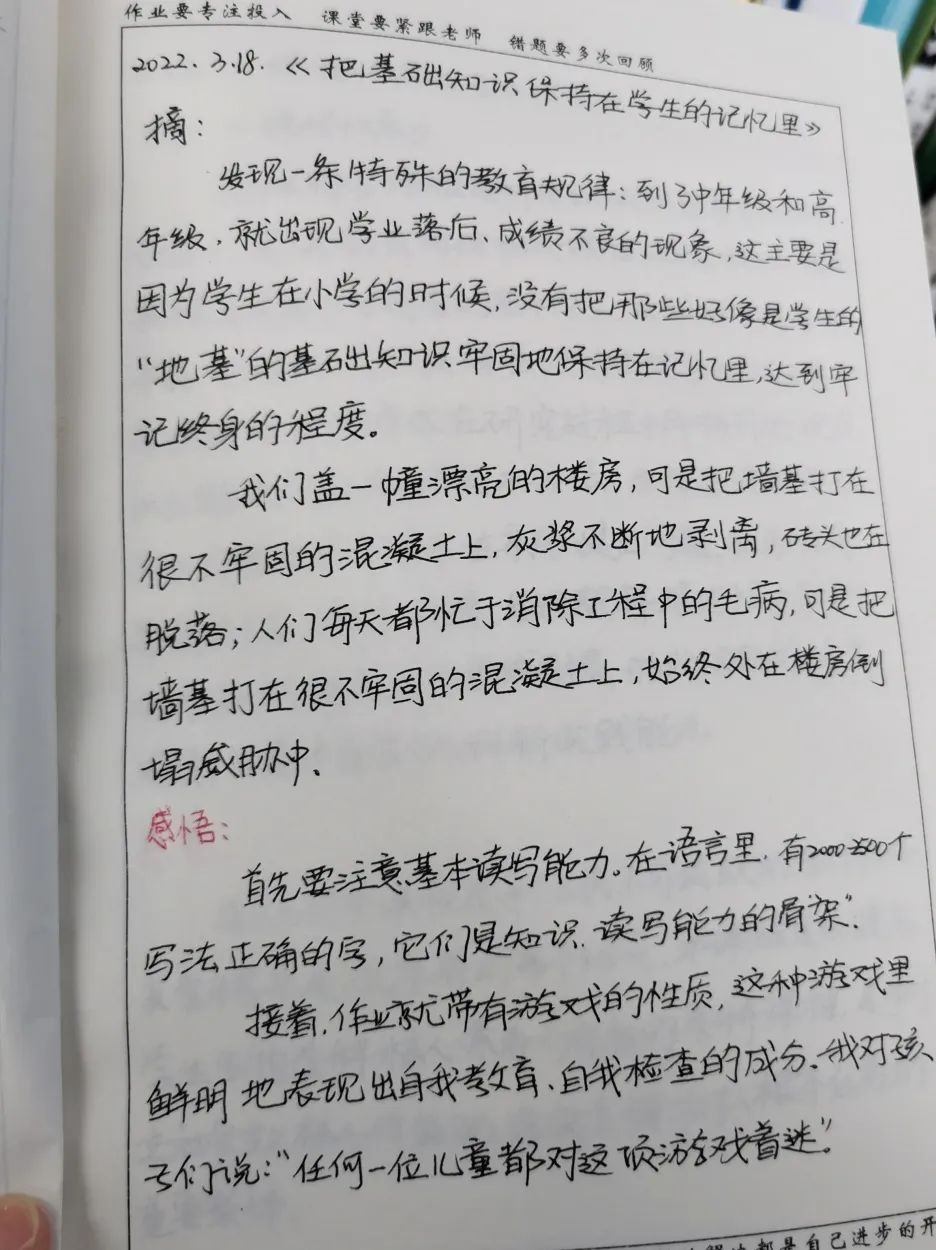 作业要专注投入 课堂要紧跟老师 错题要多次回顾
2022.3.18.《把基础知识保持在学生的记忆里》
摘：
发现一条特殊的教育规律：到了中年级和高
年级，就出现学业落后、成绩不良的现象，这主要是
因为学生在小学的时候，没有把那些好像是学生的
“地基”的基础知识牢固地保持在记忆里，达到牢
记终身的程度。
我们盖一幢漂亮的楼房，可是把墙基打在
很不牢固的混凝土上，灰浆不断地剥离，砖头也在
脱落；人们每天都忙于消除工程中的毛病，可是把
墙基打在很不牢固的混凝土上，始终处在楼房倒
塌威胁中、
感悟：
首先要注意基本读写能力。在语言里，有2000-2500个
写法正确的字，它们是知识、读写能力的“骨架”.
接着，作业就带有游戏的性质，这种游戏里
鲜明地表现出自我教育、自我检查的成分、我对孩
子们说：“任何一位儿童都对这项游戏着迷”.
都是自己进步的开